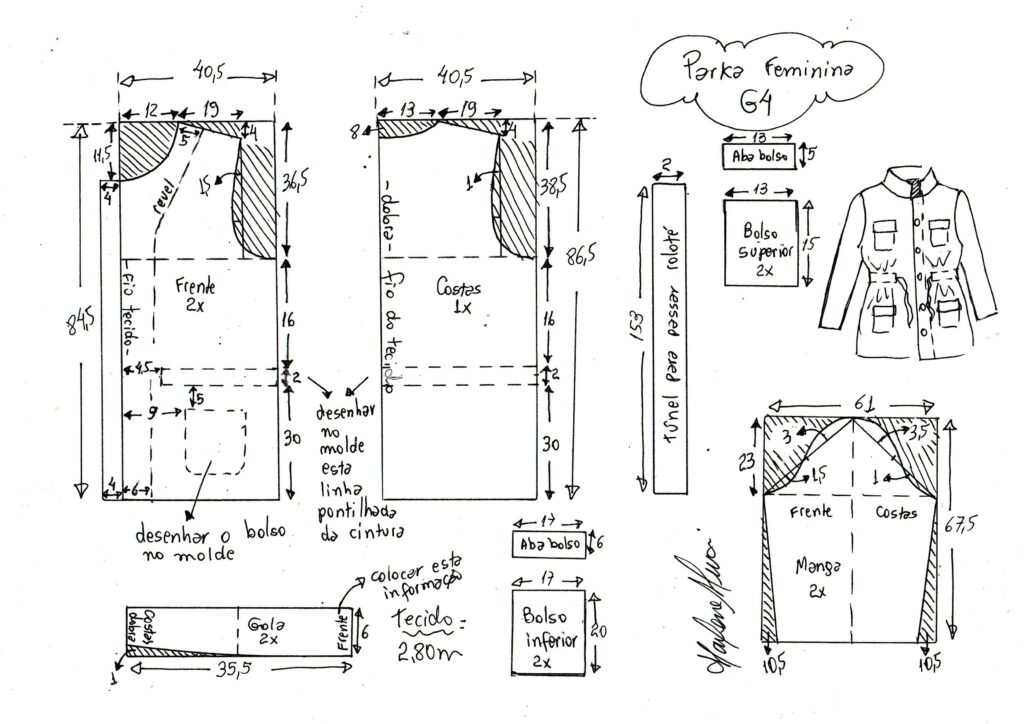 Parka Feminina
G4
40,5
12
19
5
4
11,5
4
revel
1,5
36,5
84,5
Frente
2x
-Fio tecido-
16
4,5
2
5
9
30
4
6
desenhar o bolso
no molde
40,5
13
19
8
4
1
38,5
86,5
-dobra-
fio do tecido
Costas
1x
16
2
30
desenhar
no
molde
esta
linha
pontilhada
da cintura
2
153
Túnel para passar rolotê
13
Aba bolso
5
13
Bolso
superior
2x
15
17
Aba bolso
6
17
Bolso
inferior
2x
20
61
3
3,5
23
1,5
1
Frente
Costas
67,5
Manga
2x
10,5
10,5
colocar esta
informação
Costas
dobra
Gola
2x
Frente
6
1
35,5
Tecido =
2,80m